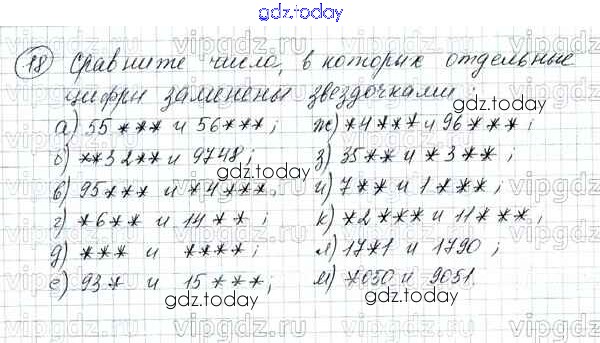 gdz.today
18 Сравните числа, в которых отдельные
цифры заменены звездочками:
а) 55*** и 56***; ж) *4*** и 96***;
б) **32** и 9748; з) 35** и *3**;
в) 95*** и *4***. и) 7** и 1***;
г) *6** и 14**; к) *2*** и 11***,
д) *** и ****; л) 17*1 и 1790;
е) 93* и 15***; м) *050 и 9051.
gdz.today
gdz.today
gdz.today
gdz.today
gdz.today
gdz.today